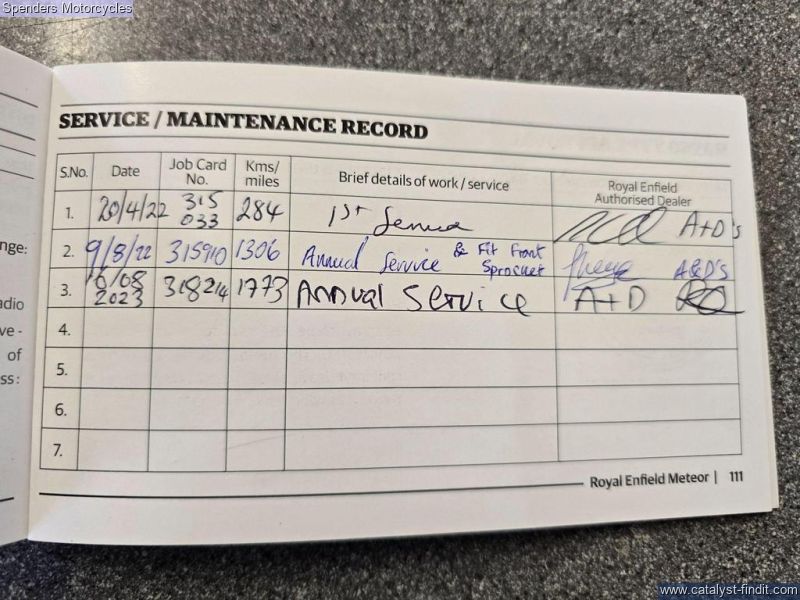 Spenders Motorcycles
SERVICE / MAINTENANCE RECORD
S.No. Date Job Card No. Kms/ miles Brief details of work / service Royal Enfield Authorised Dealer
1. 20/4/22 315 033 284 1st Service A+D's
2. 9/8/22 315910 1306 Annual Service & Fit Front Sprocket A&D's
3. 16/08 2023 318214 1773 Annual Service A+D
4.
5.
6.
7.
nge:
adio
ve -
of
ss:
Royal Enfield Meteor | 111
www.catalyst-findit.com